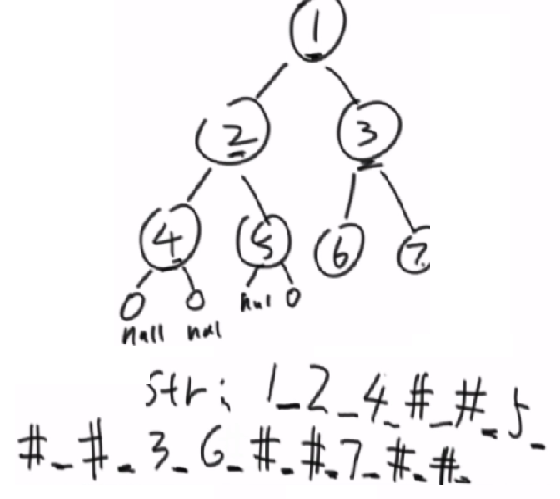 1
2 3
4 5 6 7
null nul nul
str: 1_2_4_#_#_5_
#_#_3_6_#_#_7_#_#_